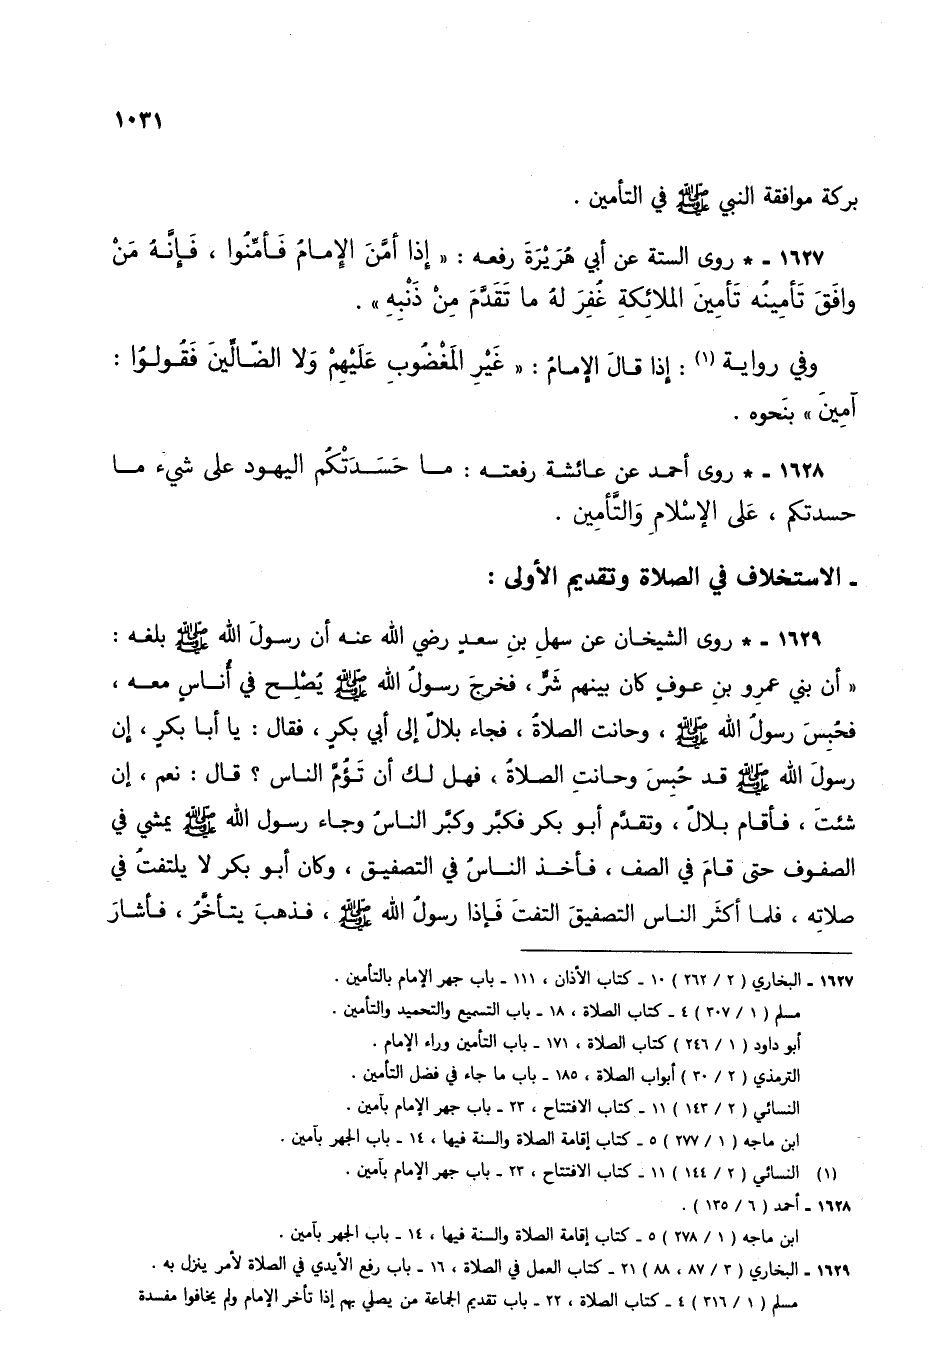 ١٠٣١
بركة موافقة النبي ﷺ في التأمين .
١٦٢٧ ـ * روى الستة عن أبي هُرَيْرَةَ رفعـه : « إذا أمَّنَ الإمـامُ فَـأَمِّنُوا ، فَـإِنَّـهُ مَنْ
وافَقَ تَأمينُه تَأمِينَ الملائِكةِ غُفِرَ لهُ ما تَقَدَّمَ مِنْ ذَنْبِهِ » .
وفي روايـة (١) : إذا قـالَ الإمـامُ : « غَيْرِ المَغْضُوبِ عَلَيْهِمْ وَلا الضّـالِّينَ فَقُـولـوُا :
آمِينَ » بنَحوه .
١٦٢٨ ـ * روى أحمـد عن عـائشـة رفعتـه : مـا حَسَـدَتْكُم اليهـود على شيء مـا
حسدتكم ، عَلى الإسْلامِ وَالتَّأمِين .
ـ الاستخلاف في الصلاة وتقديم الأولى :
١٦٢٩ ـ * روى الشيخـان عن سهلِ بنِ سعدٍ رضي الله عنـه أن رسـولَ الله ﷺ بلغـه :
« أن بني عمرِو بنِ عـوفٍ كان بينهم شَرٌّ ، فخرجَ رسـولُ الله ﷺ يُصْلِـح في أُنـاسٍ معـه ،
فحُبِسَ رسولُ الله ﷺ ، وحانت الصلاةُ ، فجاء بلالٌ إلى أبي بكرٍ ، فقال : يا أبـا بكرٍ ، إن
رسولَ الله ﷺ قـد حُبِسَ وحـانتِ الصلاةُ ، فهـل لـك أن تَؤُمَّ النـاس ؟ قـال : نعم ، إن
شئتَ ، فـأقـام بـلالٌ ، وتقـدَّم أبـو بكر فكبَّر وكبَّر النـاسُ وجـاء رسـول الله ﷺ يمشي في
الصفـوف حتى قـامَ في الصف ، فـأخـذ النـاسُ في التصفيـق ، وكان أبـو بكر لا يلتفتُ في
صلاتِه ، فلمـا أكثَر النـاس التصفيـقَ التفتَ فَـإذا رسـولُ الله ﷺ ، فـذهبَ يتـأخَّرُ ، فـأشـارَ
١٦٢٧ ـ البخاري ( ٢ / ٢٦٢ ) ١٠ ـ كتاب الأذان ، ١١١ ـ باب جهر الإمام بالتأمين .
مسلم ( ١ / ٣٠٧ ) ٤ ـ كتاب الصلاة ، ١٨ ـ باب التسميع والتحميد والتأمين .
أبو داود ( ١ / ٢٤٦ ) كتاب الصلاة ، ١٧١ ـ باب التأمين وراء الإمام .
الترمذي ( ٢ / ٣٠ ) أبواب الصلاة ، ١٨٥ ـ باب ما جاء في فضل التأمين .
النسائي ( ٢ / ١٤٣ ) ١١ ـ كتاب الافتتاح ، ٢٣ ـ باب جهر الإمام بآمين .
ابن ماجه ( ١ / ٢٧٧ ) ٥ ـ كتاب إقامة الصلاة والسنة فيها ، ١٤ ـ باب الجهر بآمين .
(١) النسائي ( ٢ / ١٤٤ ) ١١ ـ كتاب الافتتاح ، ٢٣ ـ باب جهر الإمام بآمين .
١٦٢٨ ـ أحمد ( ٦ / ١٣٥ ) .
ابن ماجه ( ١ / ٢٧٨ ) ٥ ـ كتاب إقامة الصلاة والسنة فيها ، ١٤ ـ باب الجهر بآمين .
١٦٢٩ ـ البخاري ( ٣ / ٨٧ ، ٨٨ ) ٢١ ـ كتاب العمل في الصلاة ، ١٦ ـ باب رفع الأيدي في الصلاة لأمر ينزل به .
مسلم ( ١ / ٣١٦ ) ٤ ـ كتاب الصلاة ، ٢٢ ـ باب تقديم الجماعة من يصلي بهم إذا تأخر الإمام ولم يخافوا مفسدة